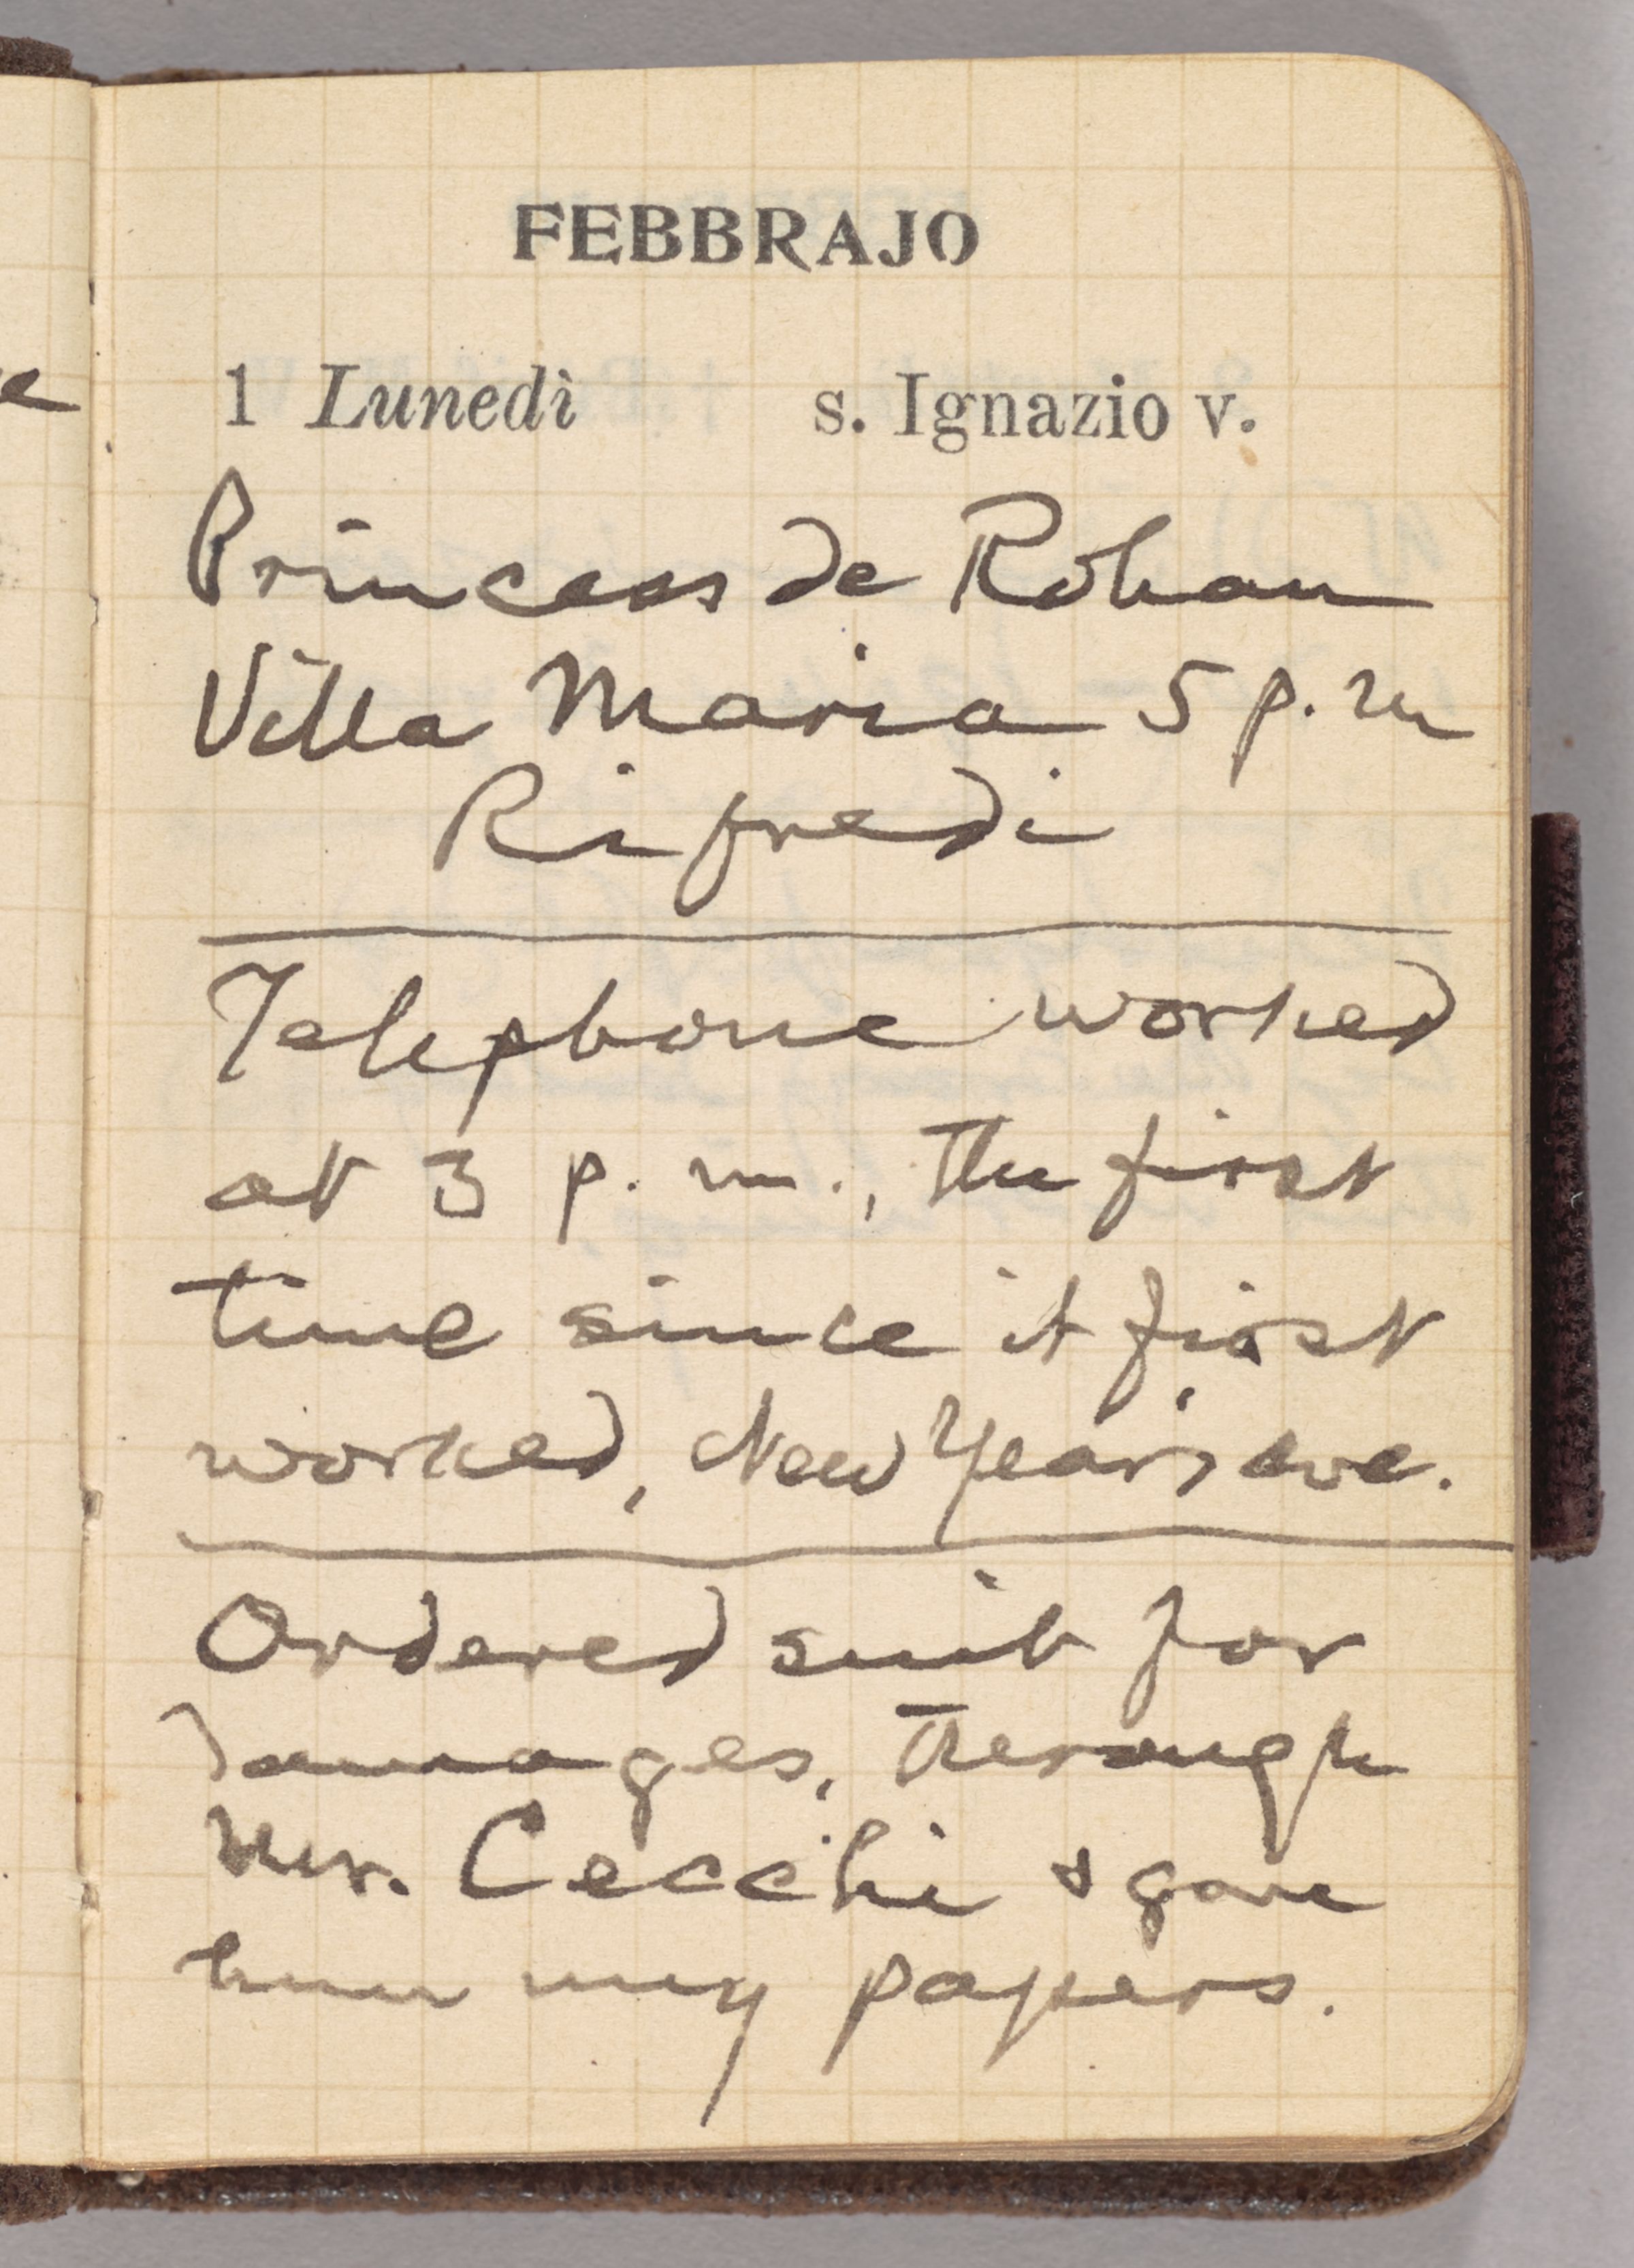 FEBBRAJO
1 Lunedì s. Ignazio v.
Princess de Rohan
Villa Maria 5 p.m
Rifredi
Telephone worked
at 3 p.m., the first
time since it first
worked, New Year's eve.
Ordered suit for
damages, through
Mr. Cecchi & gave
him my papers.